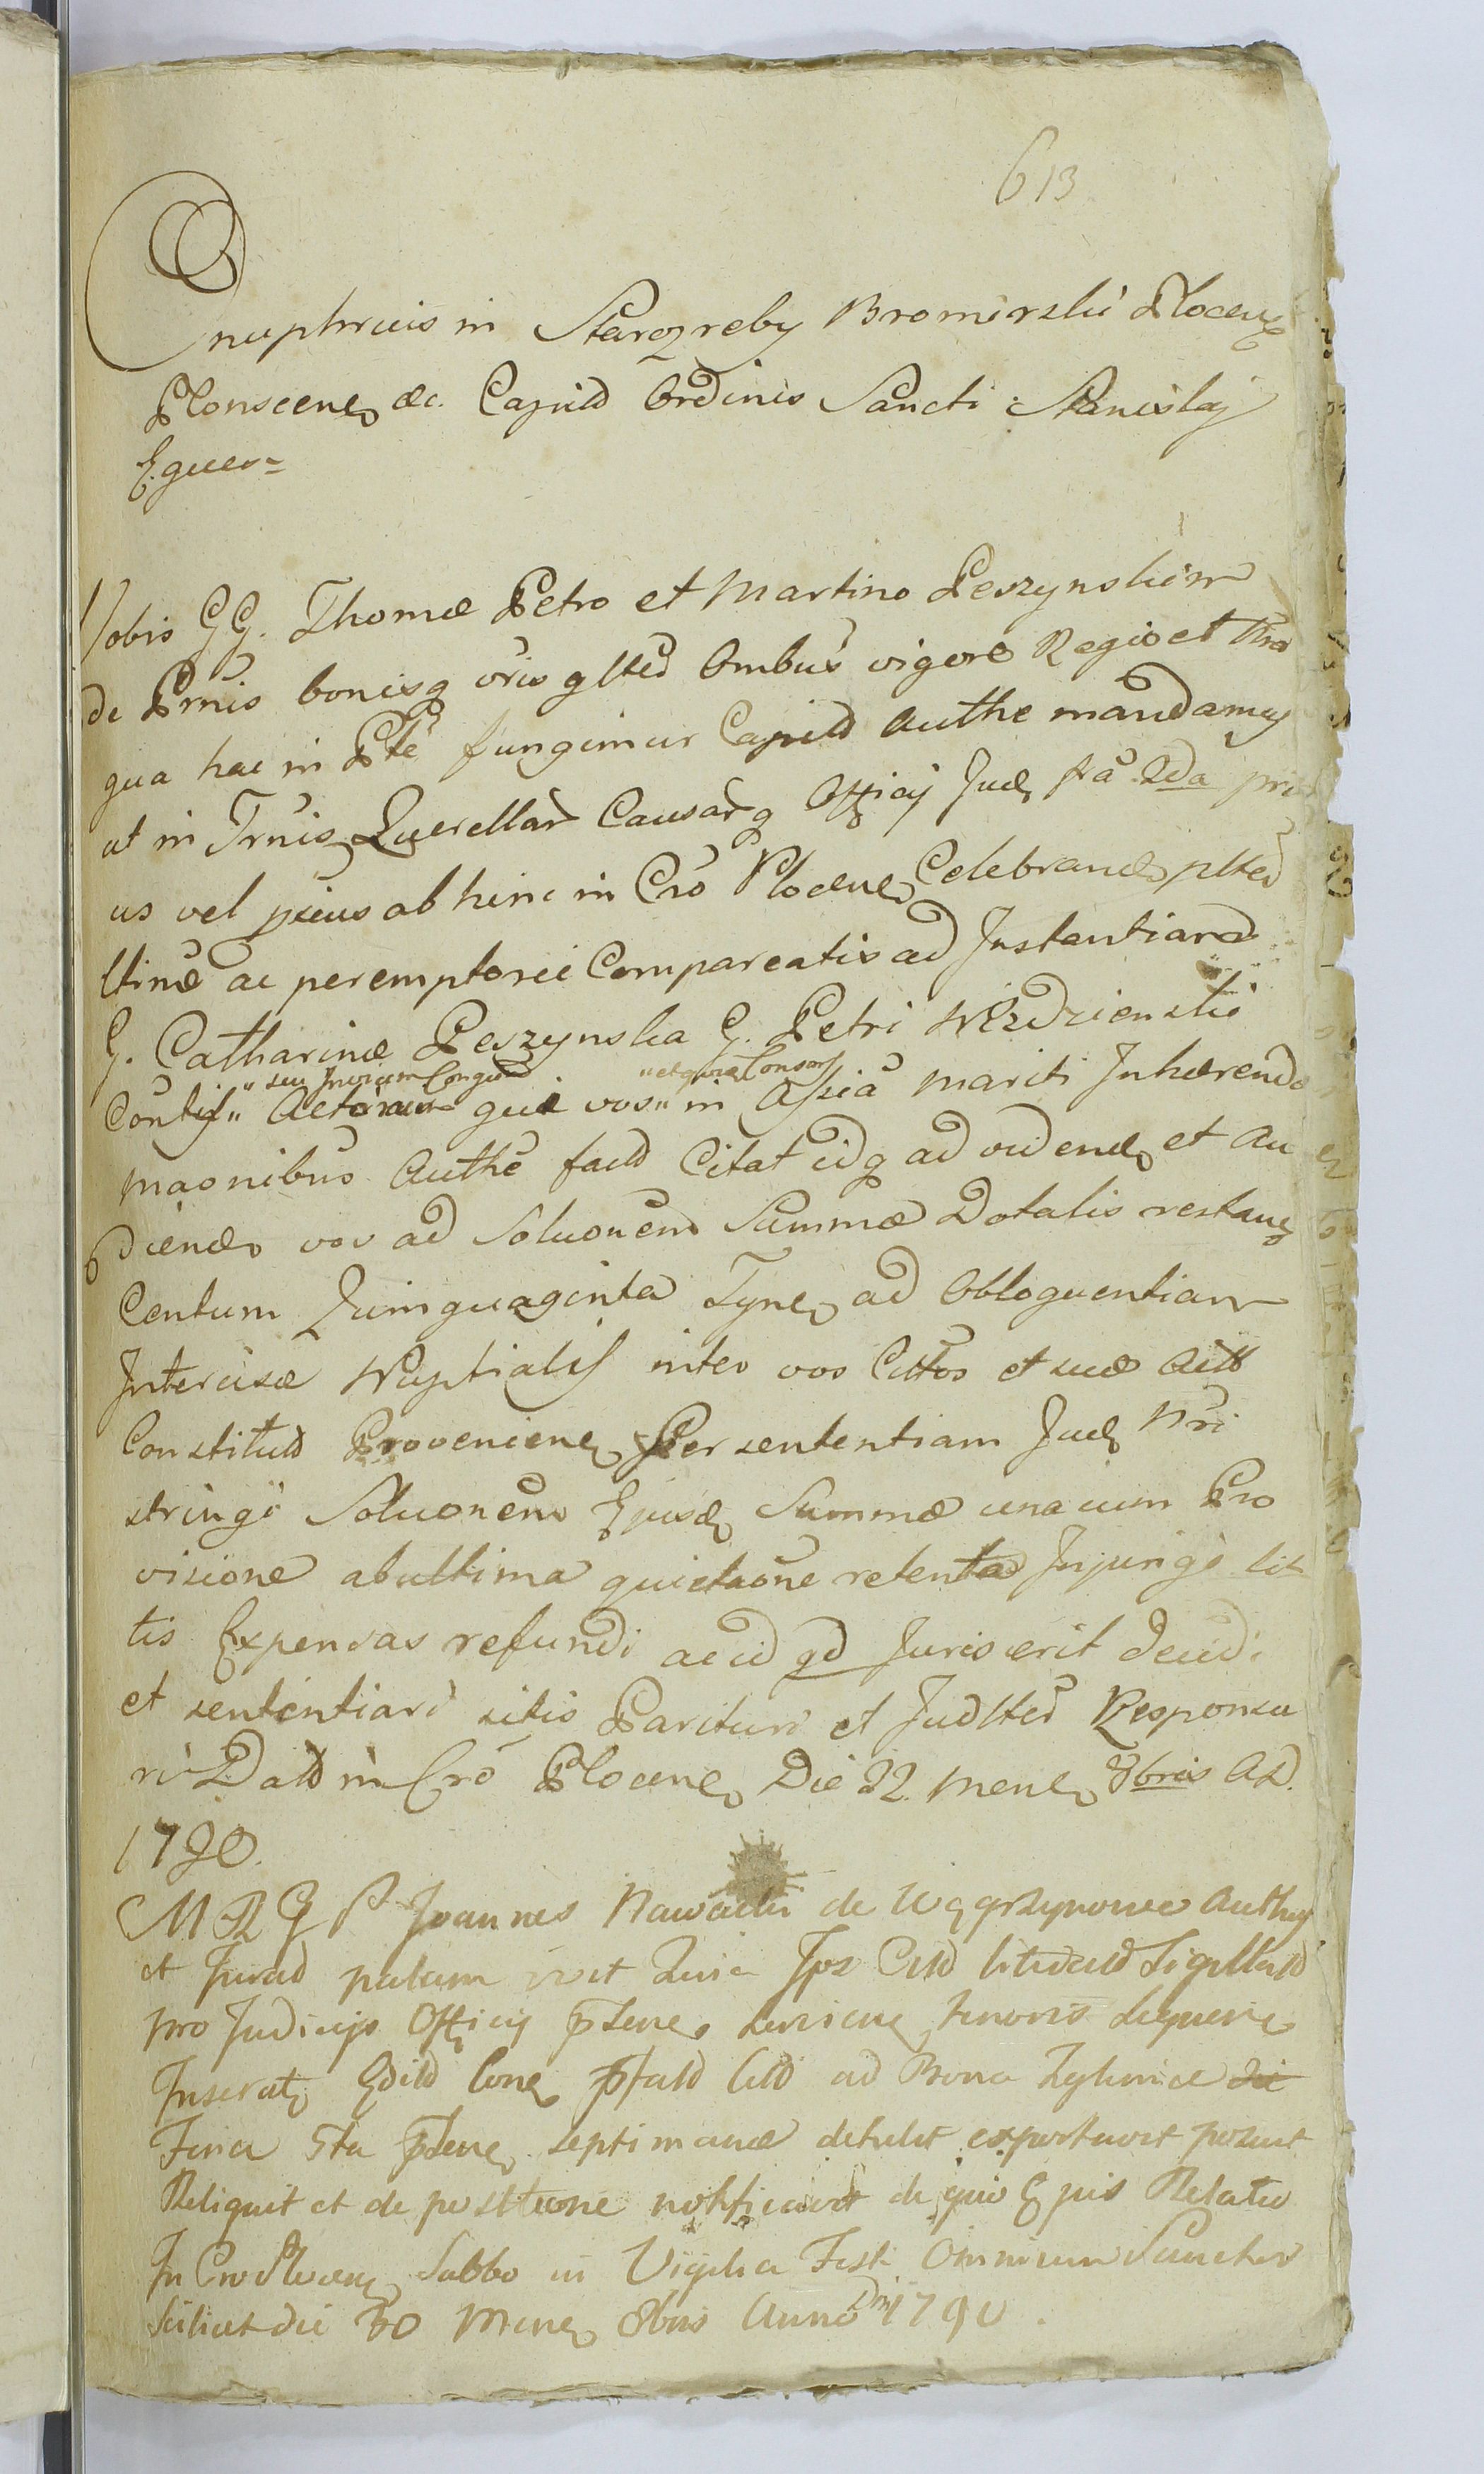 613
Onuphrius in Starozreby Bromirski Plocens
Plonscen, &c. Capnld Ordinis Sancti Stanislaj
Eques=
Vobis GG. Thomæ Petro et Martino Peszynskim
de Prnis bonisq vris gltêd Ombus vigore Regio et Nra
qua hac in Ptê fungimur Capnld Authe mandamus
ut in Trnis Querellar Causarq Officij Jud, fra 2da
us vel pcius abhinc in Cro Plocen, Celebrand, pltêd
ltinê ac peremptorie Compareatis ad Instantiam
G. Catharinæ Peszynska G. Petri Wezdzienski
"seu Invicem Conjugum "et quia Consor
Contis" Actorum quæ vos" in Assia mariti Inhærendo
maonibus Authê factd Citat idq ad vidend, et Au
diend, vos ad Soluonem Summæ Dotalis restans
Centum Quinquaginta Tynf, ad Obloquentiam
Intercisæ Nuptialis inter vos Cittos et suæ Actt
Constitutd Provenien, Per sententiam Jud, Nri
stringi Soluonem Ejusd, Summæ una cum Pro
visione ab ultima quietaone retentad Injungi lit
tis Expensas refundi ac id qd Juris erit decidi
et sententiari sitis Parituri et Judltêr Responsu
ri Datd in Cro Plocen, Die 22. Mens, 8bris AD.
1790.
MRGP Joannes Nawacki de Węgrzynowo Authus
et Jurad palam Quia Ips Citd literatd Sigillatd
pro Judicijs Officij pseñ, tenoris Sequen,
Inserat, Edid Con, pfatd Citd ad Bona
Feria 5ta pseñ, septimanæ detulit exportavit posuit
Reliquit et de positione notificavit de quo Ejus Relatio
In Cro Plocen, Sabbo in Vigilia Festi Omnium Sanctor
Scilicet die 30 Mens, 8bris Anno Dni 1790.